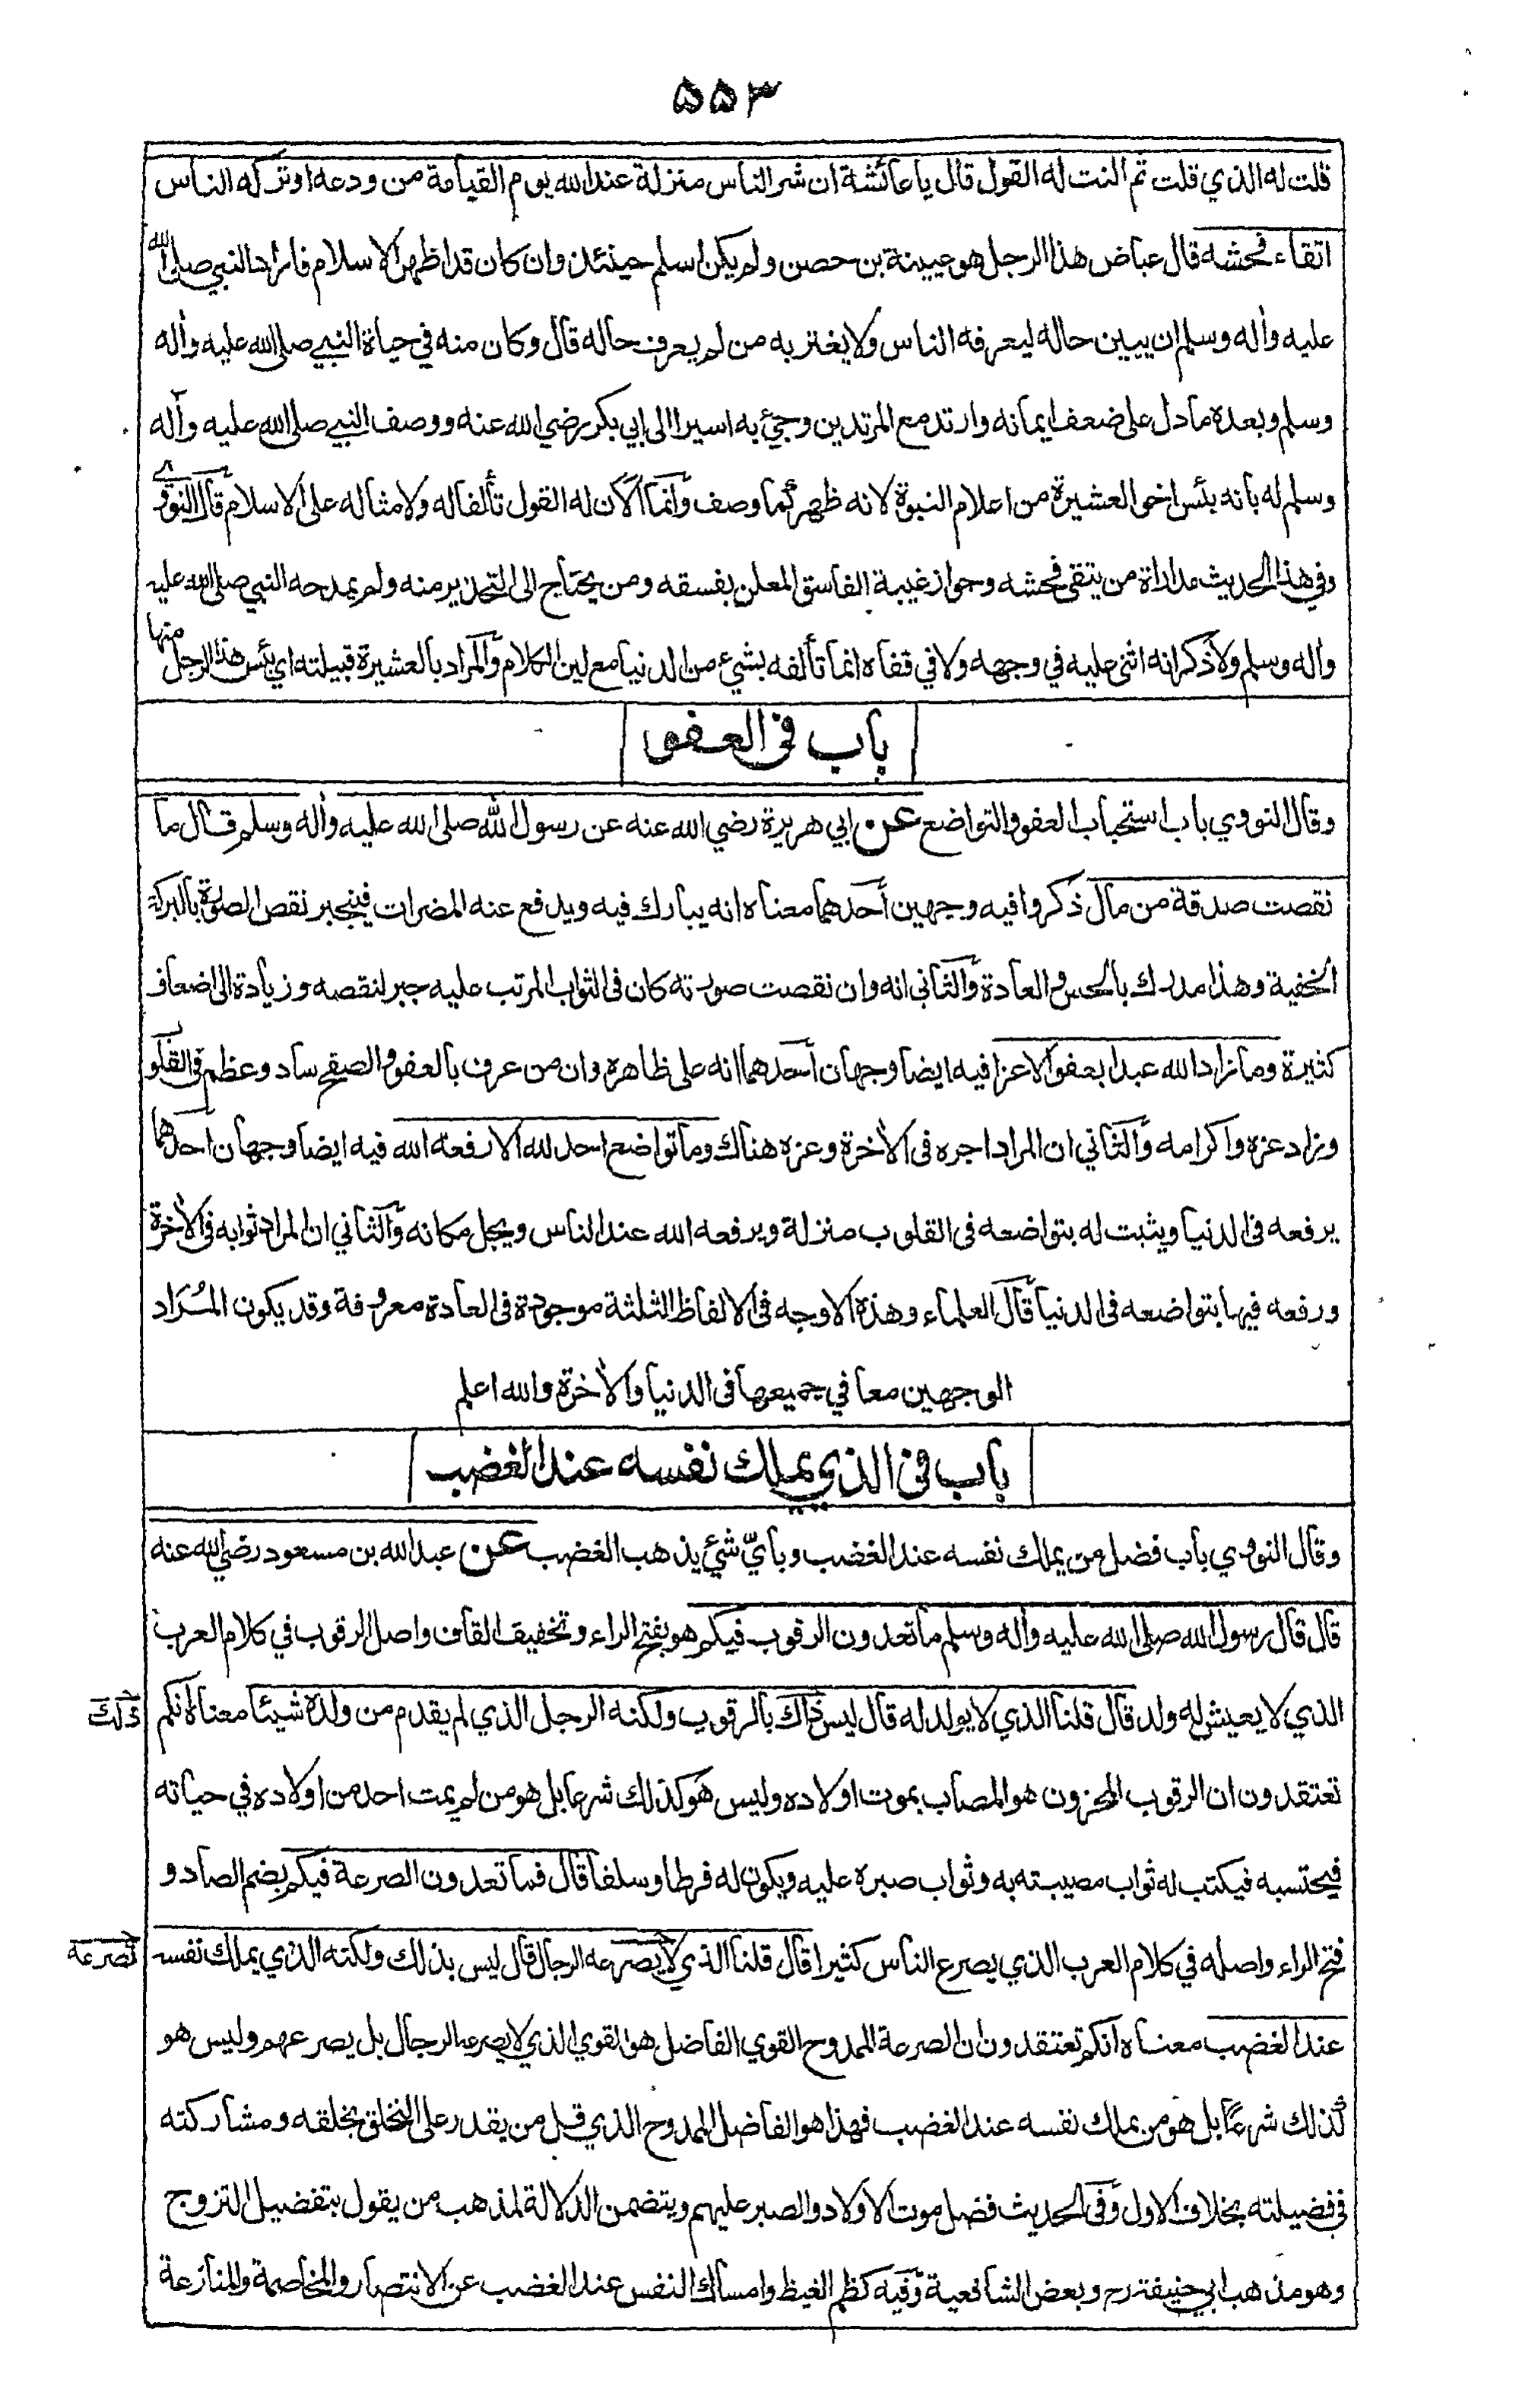 ۵۵۳
قلت له الذي قلت ثم النت له القول قال يا عائشة ان شر الناس منزلة عند الله يوم القيامة من ودعه او تركه الناس
اتقاء فحشه قال عياض هذا الرجل هو عيينة بن حصن ولم يكن اسلم حينئذ وان كان قد اظهر الاسلام فاراد النبي صلى الله
عليه وأله وسلم ان يبين حاله ليعرفه الناس ولا يغتر به من لم يعرف حاله قال وكان منه في حياة النبي صلى الله عليه وأله
وسلم وبعده ما دل على ضعف ايمانه وارتد مع المرتدين وجئ به اسيرا الى ابي بكر رضي الله عنه ووصف النبي صلى الله عليه وأله
وسلم له بانه بئس اخو العشيرة من اعلام النبوة لانه ظهر كما وصف وانما الان له القول تألفا له ولامثاله على الاسلام قال النووي
وفي هذا الحديث مداراة من يتقى فحشه وجواز غيبة الفاسق المعلن بفسقه ومن يحتاج الى التحذير منه ولم يمدحه النبي صلى الله عليه
واله وسلم ولا ذكر انه اثنى عليه في وجهه ولا في قفاه انما تألفه بشيء من الدنيا مع لين الكلام والمراد بالعشيرة قبيلته اي بئس هذا الرجل منها
باب في العفو
وقال النووي باب استحباب العفو والتواضع عن ابي هريرة رضي الله عنه عن رسول الله صلى الله عليه وأله وسلم قال ما
نقصت صدقة من مال ذكروا فيه وجهين أحدهما معناه انه يبارك فيه ويدفع عنه المضرات فينجبر نقص الصورة بالبركة
الخفية وهذا مدرك بالحس والعادة والثاني انه وان نقصت صورته كان في الثواب المرتب عليه جبر لنقصه وزيادة الى اضعاف
كثيرة وما زاد الله عبدا بعفو الا عزا فيه ايضا وجهان أحدهما انه على ظاهره وان من عرف بالعفو والصفح ساد وعظم في القلوب
وزاد عزه واكرامه والثاني ان المراد اجره في الأخرة وعزه هناك وما تواضع احد لله الا رفعه الله فيه ايضا وجهان احدهما
يرفعه في الدنيا ويثبت له بتواضعه في القلوب منزلة ويرفعه الله عند الناس ويجل مكانه والثاني ان المراد ثوابه في الأخرة
ورفعه فيها بتواضعه في الدنيا قال العلماء وهذه الاوجه في الالفاظ الثلثة موجودة في العادة معروفة وقد يكون المُرَاد
الوجهين معا في جميعها في الدنيا والأخرة والله اعلم
باب في الذي يملك نفسه عند الغضب
وقال النووي باب فضل من يملك نفسه عند الغضب وبأيّ شيء يذهب الغضب عن عبد الله بن مسعود رضي الله عنه
قال قال رسول الله صلى الله عليه وأله وسلم ما تعدون الرقوب فيكم هو بفتح الراء وتخفيف القاف واصل الرقوب في كلام العرب
الذي لا يعيش له ولد قال قلنا الذي لا يولد له قال ليس ذاك بالرقوب ولكنه الرجل الذي لم يقدم من ولده شيئا معناه انكم
ذلك
تعتقدون ان الرقوب المحزون هو المصاب بموت اولاده وليس هو كذلك شرعا بل هو من لم يمت احد من اولاده في حياته
فيحتسبه فيكتب له ثواب مصيبته به وثواب صبره عليه ويكون له فرطا وسلفا قال فما تعدون الصرعة فيكم بضم الصاد و
فتح الراء واصله في كلام العرب الذي يصرع الناس كثيرا قال قلنا الذي لا يصرعه الرجال قال ليس بذلك ولكنه الذي يملك نفسه
تصرعه
عند الغضب معناه انكم تعتقدون ان الصرعة الممدوح القوي الفاضل هو القوي الذي لا يصرعه الرجال بل يصرعهم وليس هو
كذلك شرعًا بل هو من يملك نفسه عند الغضب فهذا هو الفاضل الممدوح الذي قل من يقدر على التخلق بخلقه ومشاركته
في فضيلته بخلاف الاول وفي الحديث فضل موت الاولاد والصبر عليهم ويتضمن الدلالة لمذهب من يقول بتفضيل التزوج
وهو مذهب ابي حنيفة رح وبعض الشافعية وفيه كظم الغيظ وامساك النفس عند الغضب عن الانتصار والمخاصمة والمنازعة